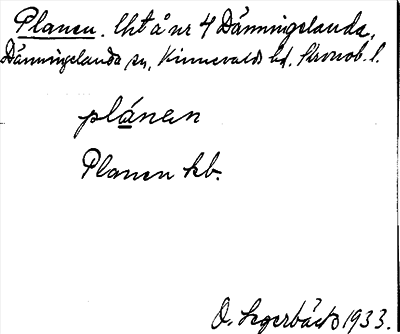 Planen. lht å nr 4 Dänningelanda,
Dänningelanda sn, Kinnevalds hd, Kronob. l.
plánen
Planen kb.
O. Segerbäck 1933.